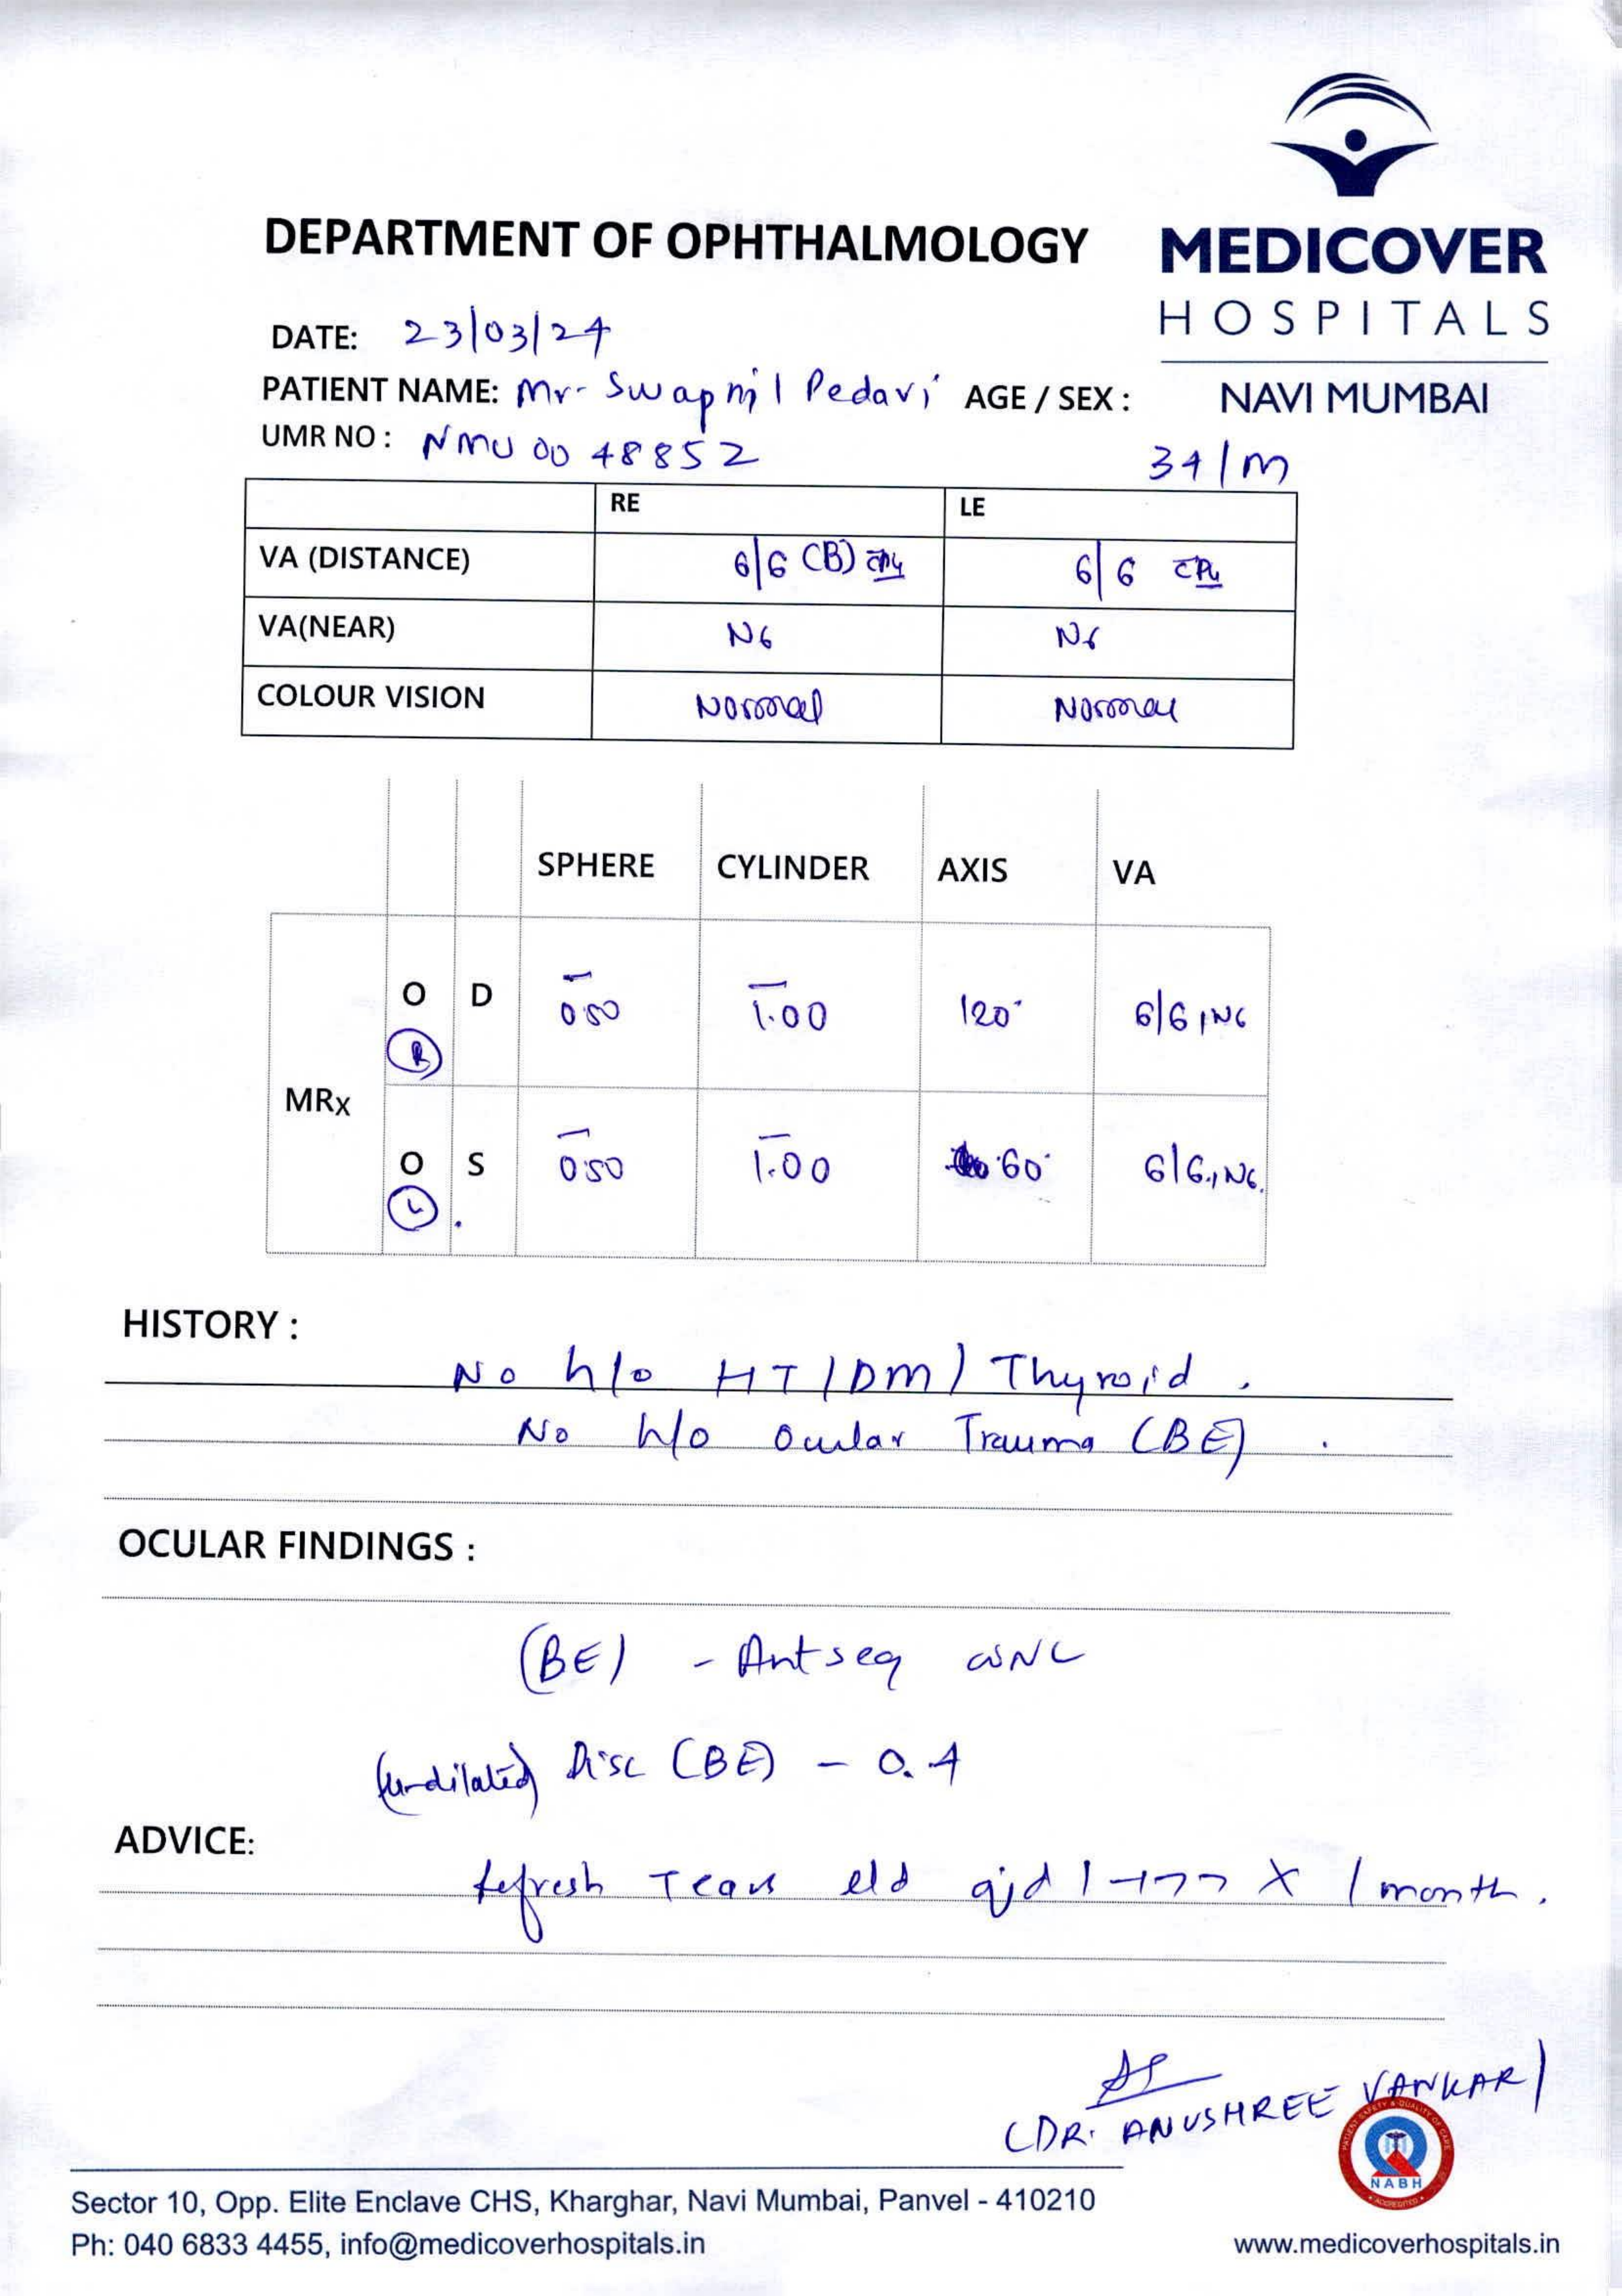 DEPARTMENT OF OPHTHALMOLOGY
MEDICOVER
HOSPITALS
NAVI MUMBAI
DATE: 23/03/24
PATIENT NAME: Mr. Swapnil Pedavi AGE / SEX :
UMR NO : NMU 00 48852 34/M
RE LE
VA (DISTANCE) 6/6 (B) 6/6
VA(NEAR) N6 N6
COLOUR VISION Normal Normal
SPHERE CYLINDER AXIS VA
O D – 0.50 – 1.00 120° 6/6, N6
(R)
MRx
O S – 0.50 – 1.00 60° 6/6, N6.
(L).
HISTORY :
No h/o HT / DM / Thyroid.
No h/o Ocular Trauma (BE).
OCULAR FINDINGS :
(BE) - Ant seg WNL
(undilated) Disc (BE) - 0.4
ADVICE:
Refresh Tears e/d qid x 1 month.
(DR. ANUSHREE VANKAR)
PATIENT SAFETY & QUALITY OF CARE
NABH
ACCREDITED
Sector 10, Opp. Elite Enclave CHS, Kharghar, Navi Mumbai, Panvel - 410210
Ph: 040 6833 4455, info@medicoverhospitals.in www.medicoverhospitals.in